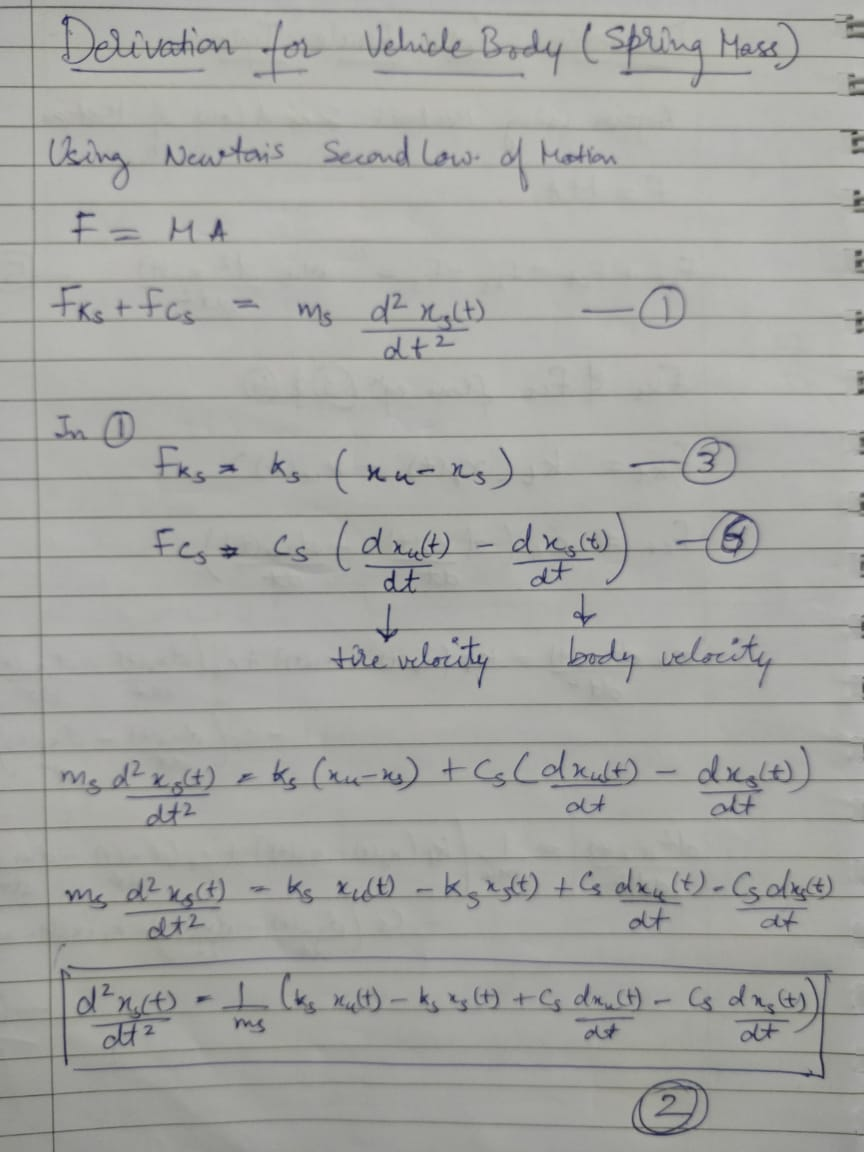 Derivation for Vehicle Body (Spring Mass)
Using Newton's Second Law of Motion
F = MA
F_Ks + F_Cs = m_s d²x_s(t)/dt² — ①
In ①
F_Ks = k_s (x_u - x_s) — ③
F_Cs = C_s (dx_u(t)/dt - dx_s(t)/dt) —
↓ ↓
tire velocity body velocity
m_s d²x_s(t)/dt² = k_s (x_u - x_s) + C_s (dx_u(t)/dt - dx_s(t)/dt)
m_s d²x_s(t)/dt² = k_s x_u(t) - k_s x_s(t) + C_s dx_u(t)/dt - C_s dx_s(t)/dt
d²x_s(t)/dt² = 1/m_s (k_s x_u(t) - k_s x_s(t) + C_s dx_u(t)/dt - C_s dx_s(t)/dt)
②